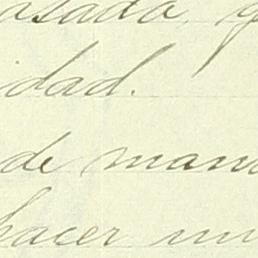 asada, y
idad.
de man
hacer un